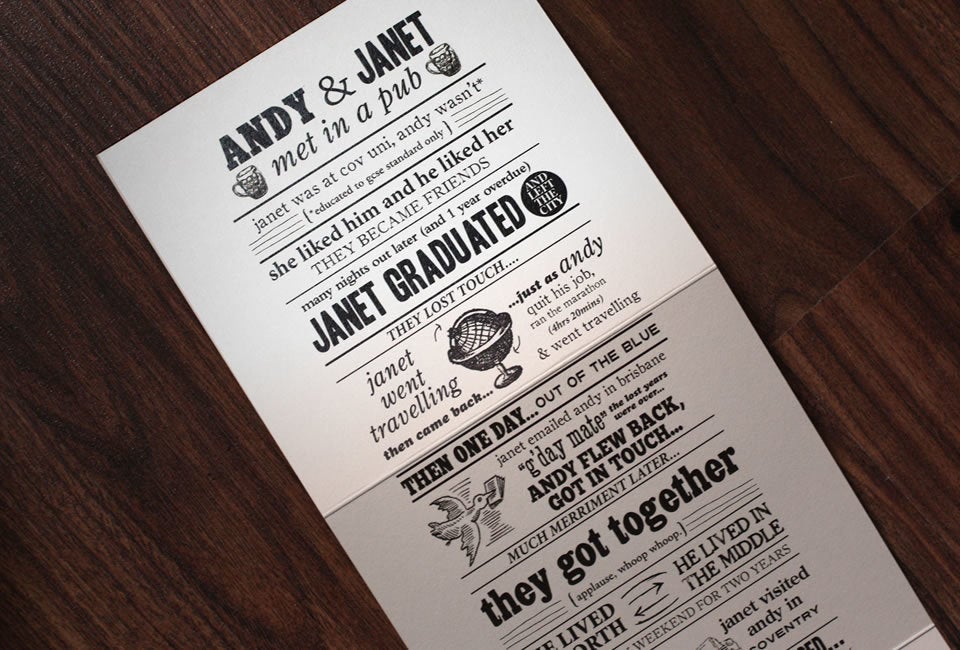 ANDY & JANET
met in a pub
janet was at cov uni, andy wasn't*
{*educated to gcse standard only}
she liked him and he liked her
THEY BECAME FRIENDS
many nights out later (and 1 year overdue)
JANET GRADUATED
AND
LEFT
THE
CITY
THEY LOST TOUCH....
janet
went
travelling
then came back...
...just as andy
quit his job,
ran the marathon
(4hrs 20mins)
& went travelling
THEN ONE DAY... OUT OF THE BLUE
janet emailed andy in brisbane
"g'day mate" the lost years
were over...
ANDY FLEW BACK,
GOT IN TOUCH...
MUCH MERRIMENT LATER...
they got together
{applause, whoop whoop.}
HE LIVED IN
THE MIDDLE
LIVED
WEEKEND FOR TWO YEARS
janet visited
andy in
COVENTRY